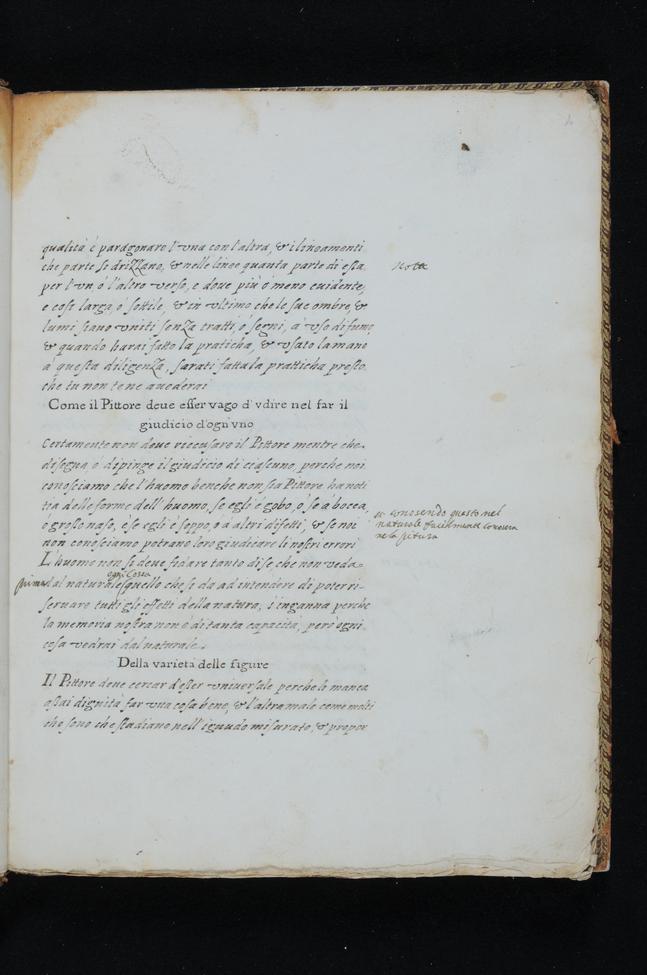 qualità è paragonare l'vna con l'altra, & i lineamenti
che parte si drizzano, & nelle linee quanta parte di essa
Nota
per l'un, ò l'altro verso, e doue più ò meno euidente,
e cosi larga, o sottile, & in vltimo che le sue ombre, &
lumi siano vniti senza tratti, o segni, à vso di fumo,
& quando harai fatto la praticha, & vsato la mano
à questa diligenza, sarati fatta la pratticha presto,
che tu non te ne auederai
Come il Pittore deue esser vago d'vdire nel far il
giudicio d'ogni vno
Certamente non deue riccusare il Pittore mentre che
disegna, o dipinge il giudicio di ciascuno, perche noi
conosciamo che l'huomo benche non sia Pittore ha noti
tia delle forme dell'huomo, se egli è gobo, o se à bocca,
ò grosso naso, è se egli è seppo, o à altri difetti, & se noi
conosendo questo nel
naturale facilmente
ne la pitura
non conosciamo potrano loro giudicare li nostri errori
L'huomo non si deue fidare tanto di se che non veda
ogni cossa
prima dal naturale quello che si da ad intendere di poter ri-
seruare tutti gli effetti della natura, s'inganna perche
la memoria nostra non è di tanta capacità, però ogni
cosa vedrai dal naturale.
Della varietà delle figure
Il Pittore deue cercar d'esser vniuersale perche li manca
assai dignità far vna cosa bene, & l'altra male come molti
che sono che studiano nell'ignudo misurato, & propor